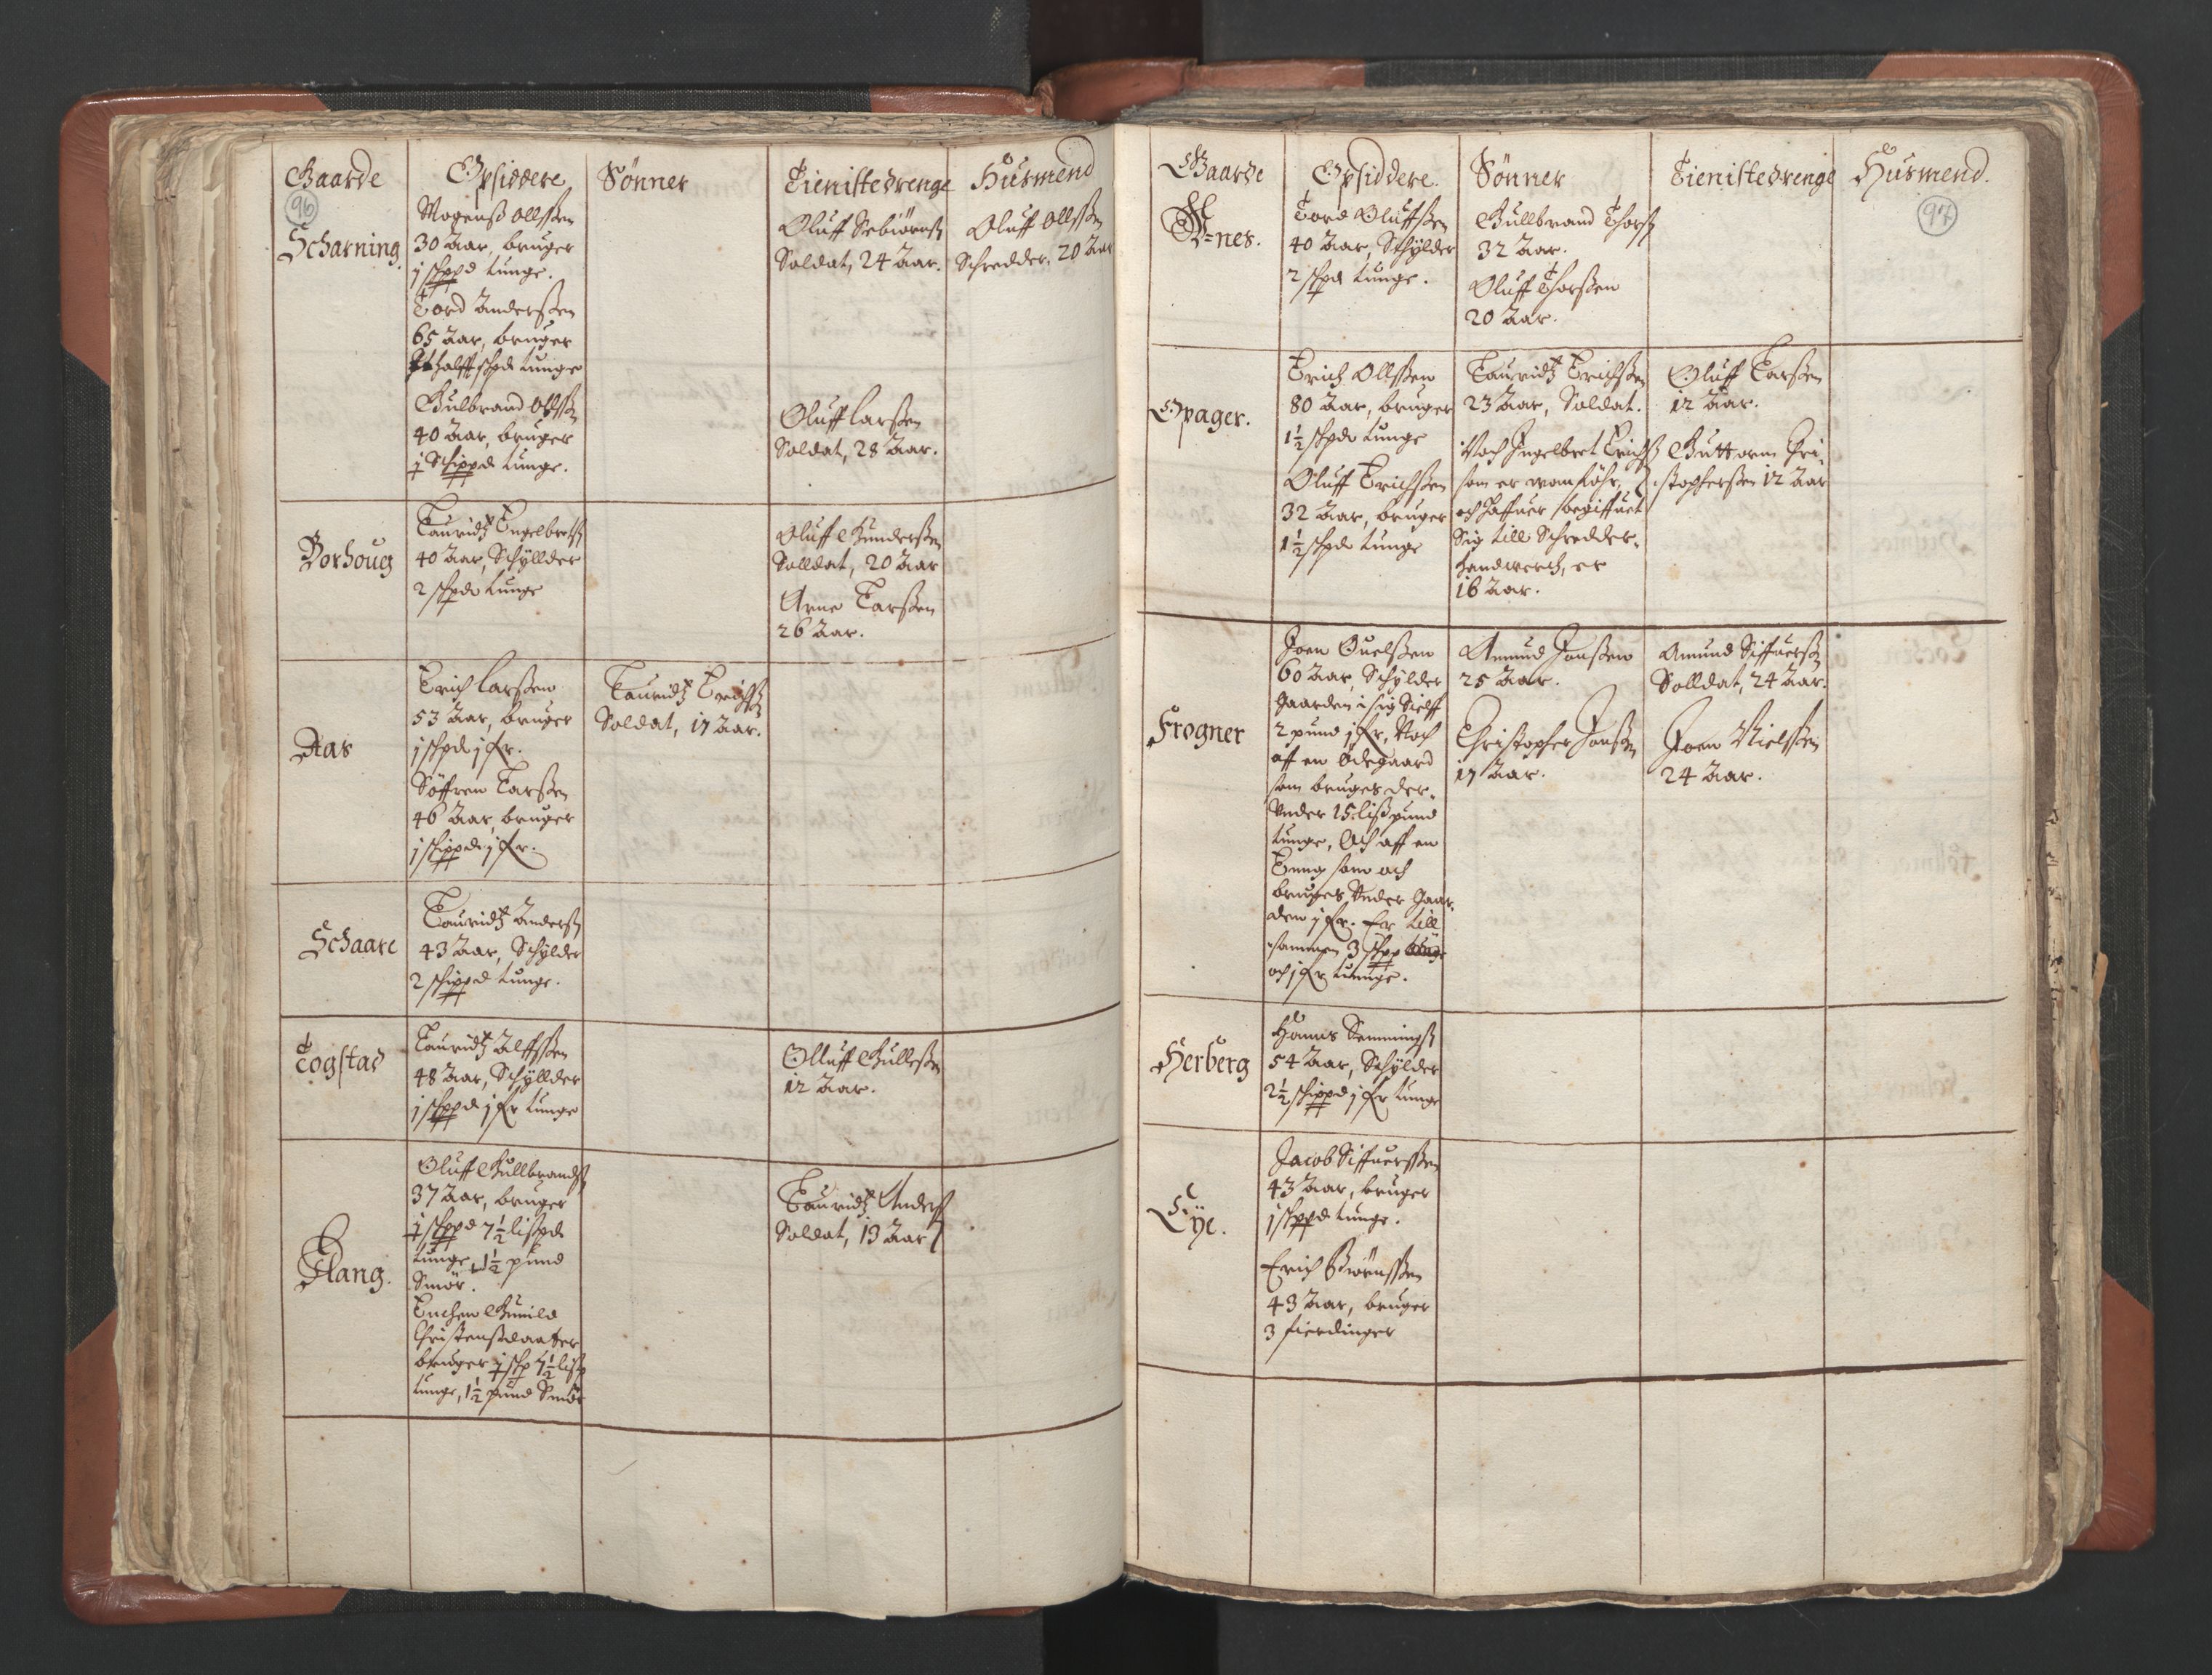 Gaarde
Opsiddere
Sönner
Tienistedrenge
Husmend
96
Scharning.
Mogenß Ollßen
30 Aar, bruger
j schppd tunge.
Tord Anderßen
65 Aar, bruger
halff schpd tunge
Gulbrand Ollß
40 Aar, bruger
j Schippd tunge.
Oluff Sebiörnß
Soldat, 24 Aar.
Oluff Larßen
Soldat, 28 Aar.
Oluff Ollßen
Schredder, 20 Aar
Borhoug
Lauridtz Engelbretß
40 Aar, Schyllder
2 schpd tunge
Oluff Gunderßen
Solldat, 20 Aar
Arne Larßen
26 Aar.
Aas
Erich Larßen
53 Aar, bruger
j schpd j fr.
Söffren Larßen
46 Aar, bruger
j schippd j fr.
Lauridtz Erichß
Soldat, 17 Aar.
Schaare
Lauridtz Anderß
43 Aar, Schylder
2 schippd tunge.
Togstad
Lauridtz Alffßen
48 Aar, Schyllder
j schppd j fr tunge
Olluff Gulleßen
12 Aar.
Elang.
Oluff Gullbrandß
37 Aar, bruger
j schppd 7½ lißpd
tunge, 1½ pund
Smör.
Enchen Gunild
Christenßdaatter
bruger j schp 7½ lißp
tunge, 1½ pund Smör
Lauridtz Anderß
Soldat, 13 Aar
Gaarde
Opsiddere.
Sönner
Tienistedrenge
Husmend.
97
=nes.
Tord Oluffßen
40 Aar, Schylder
2 schpd tunge.
Gullbrand Thorß
32 Aar.
Oluff Thorßen
20 Aar.
Opager.
Erich Ollßen
80 Aar, bruger
1½ schpd tunge
Oluff Erichßen
32 Aar, bruger
1½ schpd tunge
Lauridtz Erichßen
23 Aar, Soldat.
Noch Ingelbret Erichß
som er wanföhr,
och haffuer begiffuet
Sig till Schredder-
handwerch, er
16 Aar.
Oluff Larßen
12 Aar.
Guttorm Cri-
stopherßen 12 Aar
Frogner
Joen Ouelßen
60 Aar, Schylder
Gaarden i sig Sielff
2 pund j fr, Noch
aff en Ödegaard
som bruges der-
Under 15 lißpund
tunge, Och aff en
Eung som och
bruges Under Gaar-
den j fr. Er till
sammen 3 schpp
och j fr tunge.
Amund Jonßen
25 Aar.
Christopher Jonßen
17 Aar.
Amund Siffuerß
Solldat, 24 Aar.
Joen Nielßen
24 Aar.
Herberg
Hanns Semmingß
54 Aar, Schylder
2½ schippd j fr tunge
Eye.
Jacob Siffuerßen
43 Aar, bruger
j schppd tunge.
Erich Biörnßen
43 Aar, bruger
3 fierdinger